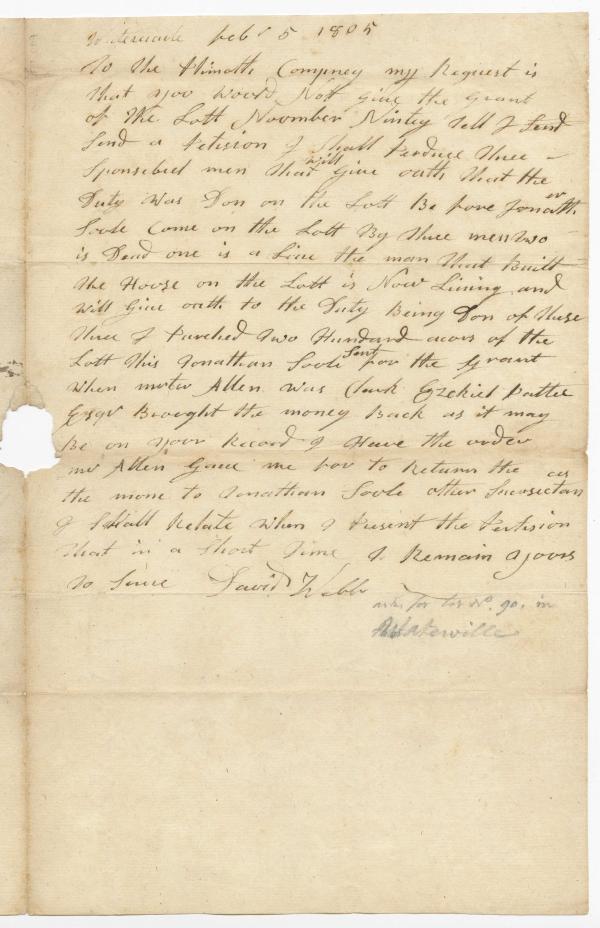 Watervile febr 5 1805
To the Plimoth Compney my Request is
that yoo woord Not give the grant
of the Lott Noomber Ninty Tell I Send
Send a Petision I shall Perduce three
Sponsebed men that will give oath that the
Duty was Don on the Lott Be fore Jonarth
Soole Come on the Lott By three men two
is Dead one is a Live the man that Built
the Hoose on the Lott is Now Liuing and
will give oath to the Duty Being Don of these
three I Purched two Hundard acors of the
Lott this Jonathan Soole Sent for the Grant
when mster Allen was Clark Ezekiel Pattee
Esqr Broogt the money Back as it may
be on yoor Record I Heve the order
mr Allen gaue me for to Return the
the mone to Jonathan Soole other Sircustan ces
I Shall Relate when I Present the Pertision
that in a Short Time I Remain yoors
to Sirue David Webb
for Lot No. 90. in
Waterville